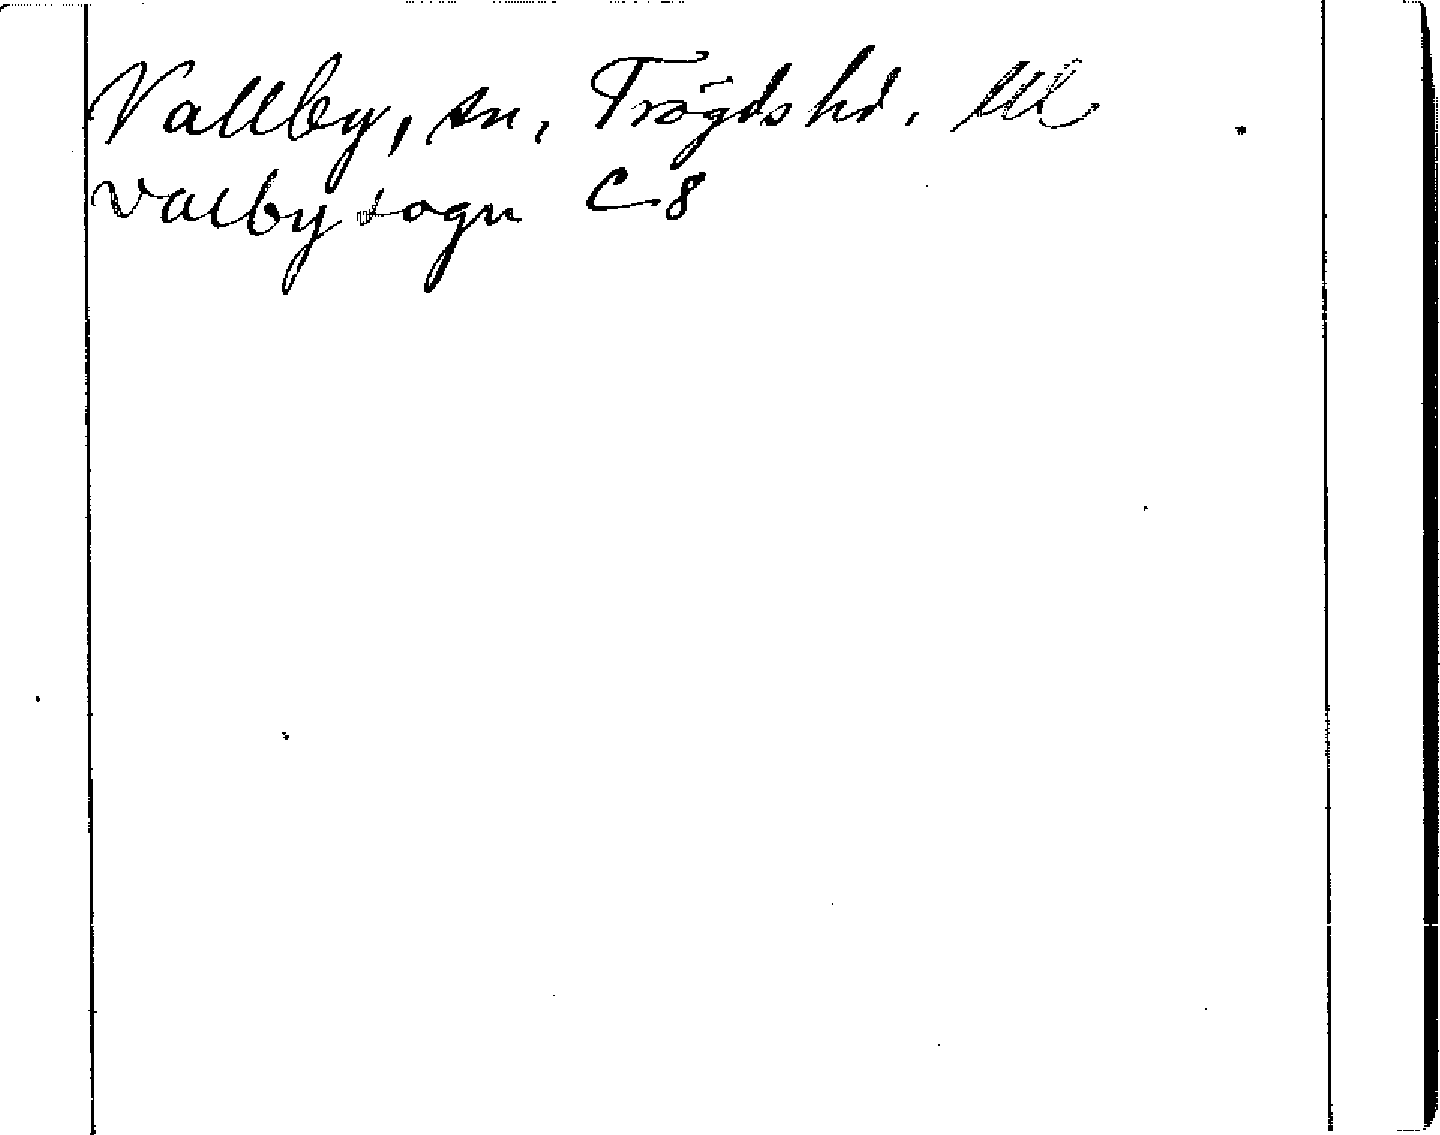 Vallby, sn, Trögds hd. Ul
Valby sogn C 8